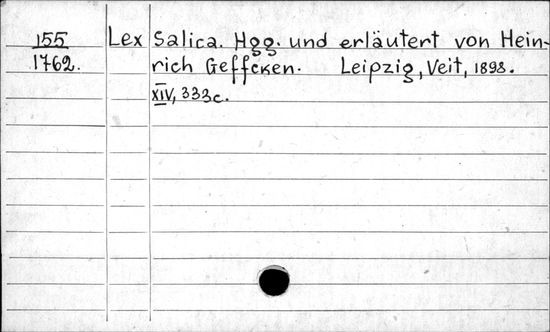 155 Lex Salica. Hgg. und erläutert von Hein-
1762. rich Geffcken. Leipzig, Veit, 1898.
XIV, 333c.